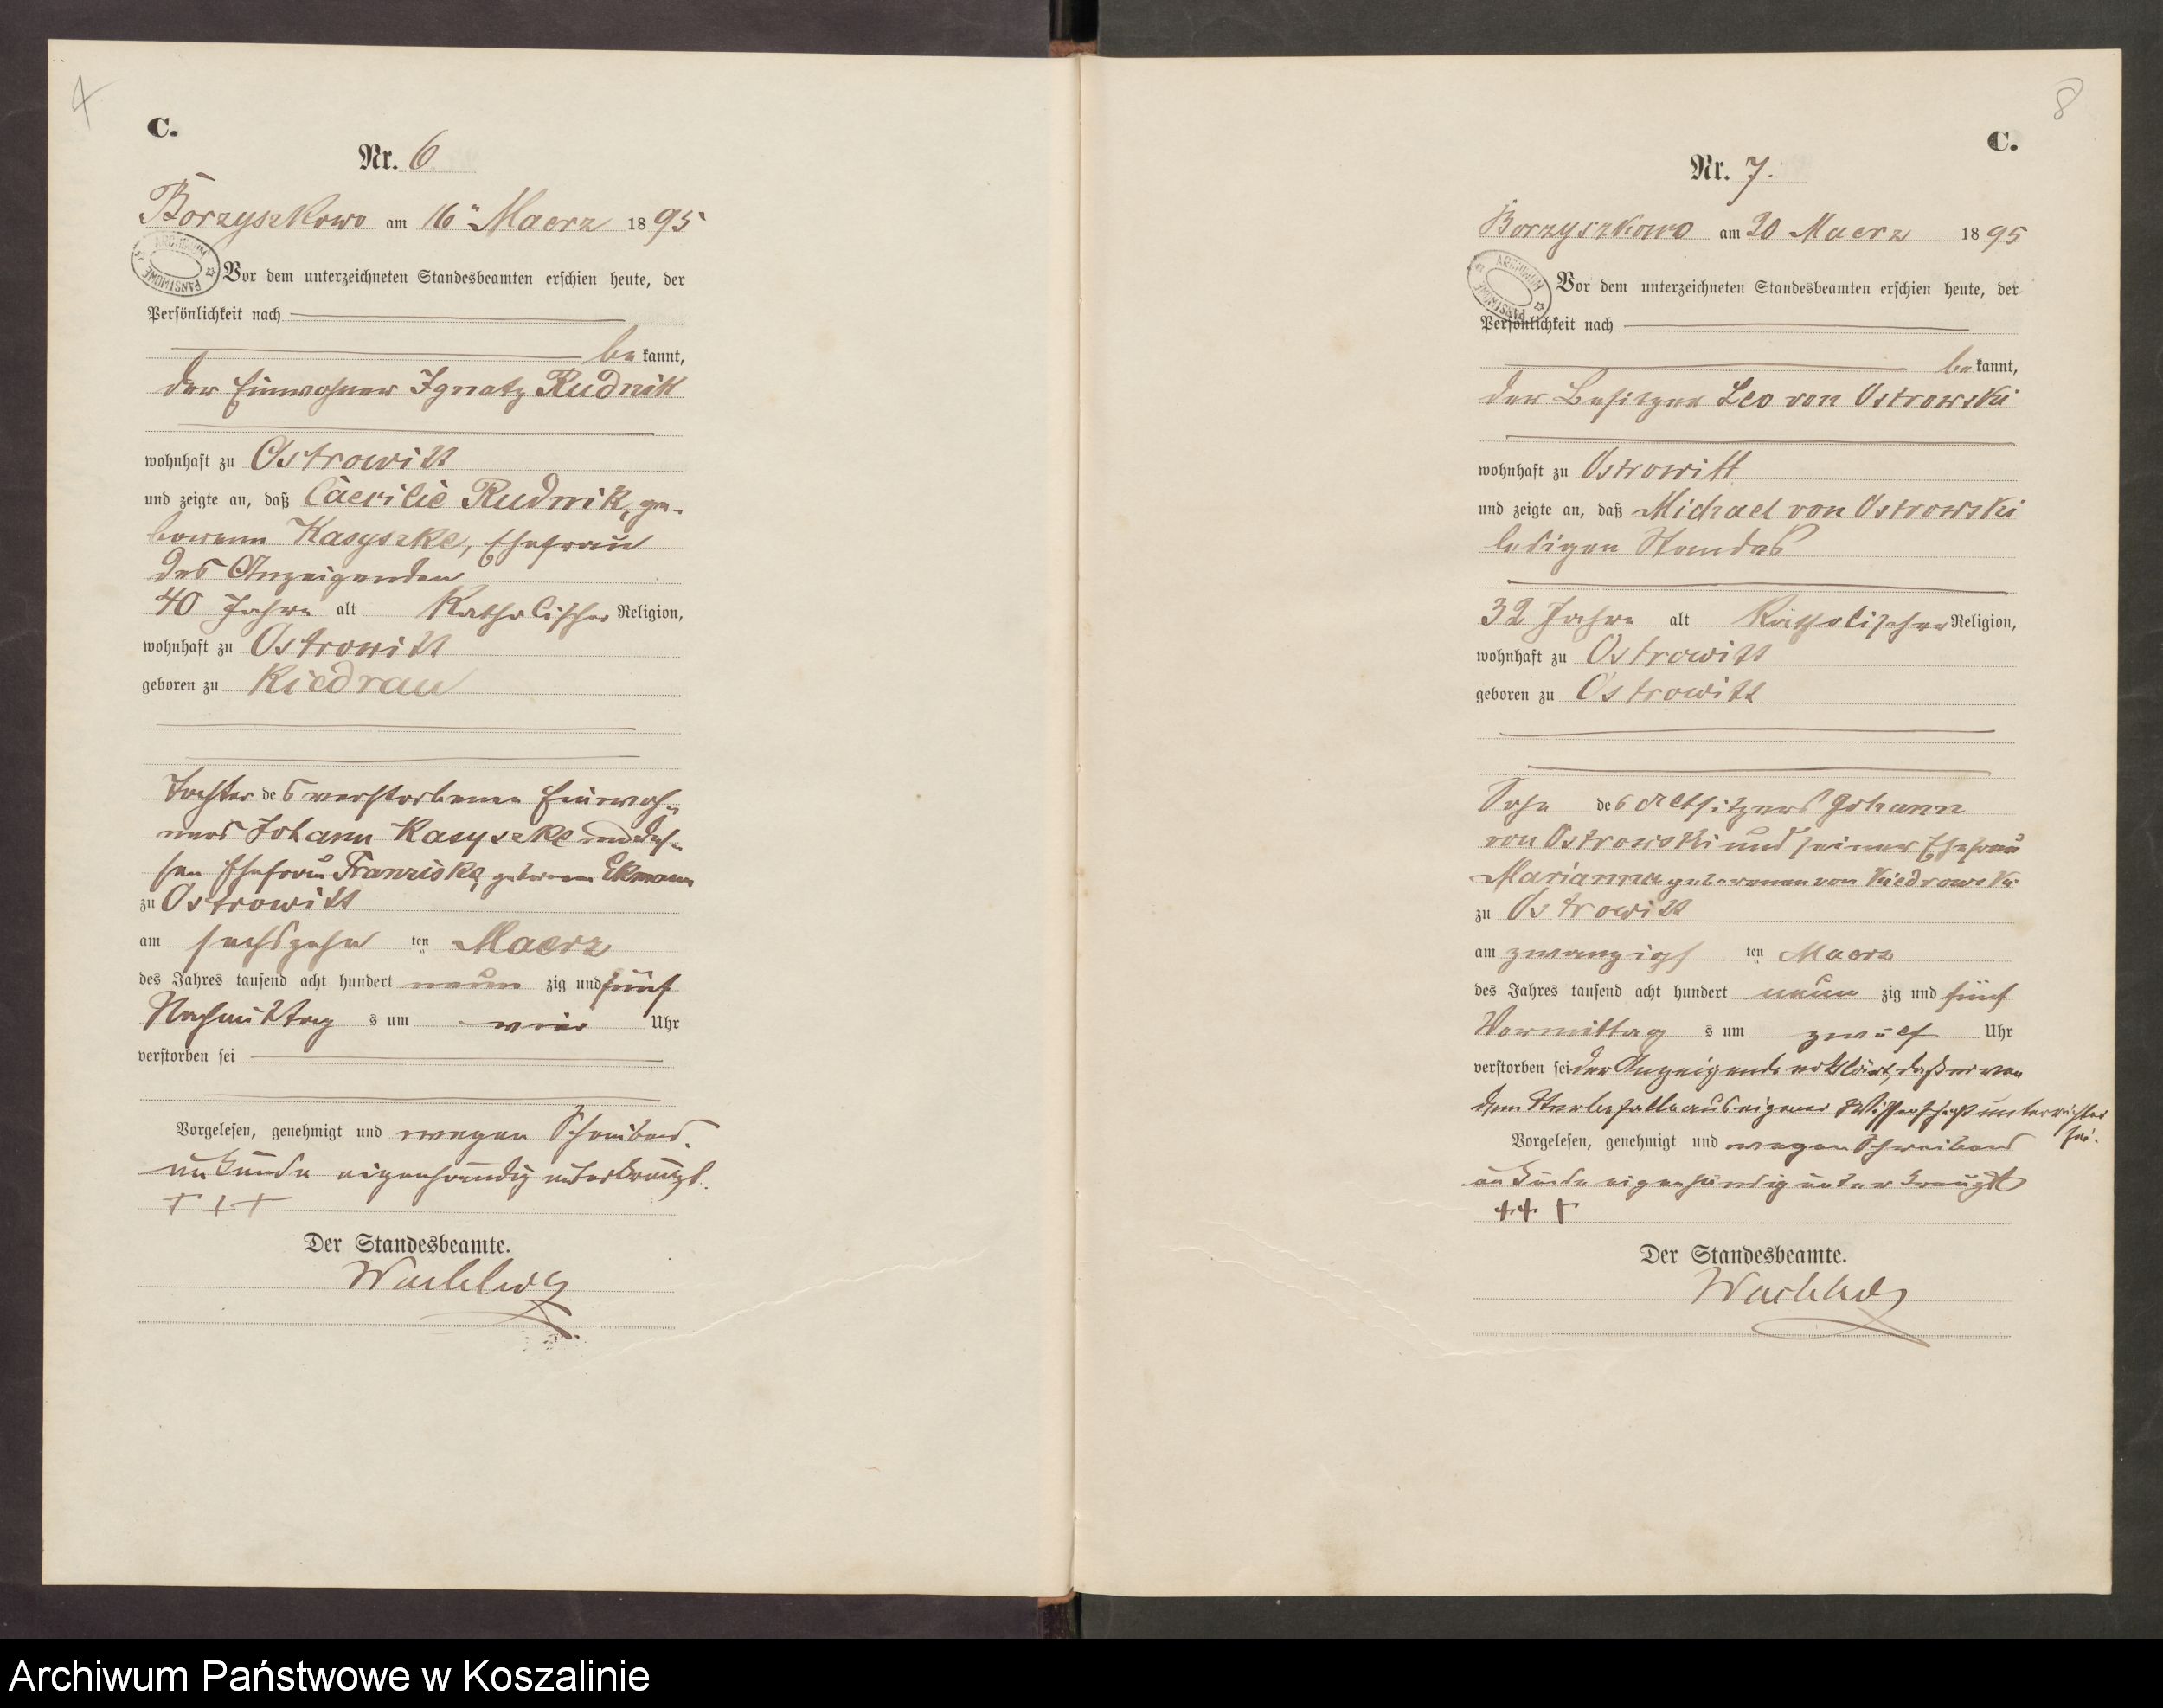 C.
Nr. 6
Borzyszkowo am 16ten Maerz 1895
Vor dem unterzeichneten Standesbeamten erschien heute, der
Persönlichkeit nach
bekannt,
der Einwohner Ignatz Rudnik
wohnhaft zu Ostrowitt
und zeigte an, daß Cäcilie Rudnik, ge-
borenen Kasyszke, Ehefrau
des Anzeigenden
40 Jahre alt Katholischer Religion,
wohnhaft zu Ostrowitt
geboren zu Kiedrau
Tochter des verstorbenen Einwoh-
ners Johann Kasyszke und des-
sen Ehefrau Franziska geborenen
zu Ostrowitt
am sechszehn ten Maerz
des Jahres tausend acht hundert neun zig und fünf
Nachmittag s um vier Uhr
verstorben sei
Vorgelesen, genehmigt und wegen Schreibens-
unkunde eigenhändig unterkreuzt.
+++
Der Standesbeamte.
8
C.
Nr. 7.
Borzyszkowo am 20 Maerz 1895
Vor dem unterzeichneten Standesbeamten erschien heute, der
Persönlichkeit nach
bekannt,
der Besitzer Leo von Ostrowski
wohnhaft zu Ostrowitt
und zeigte an, daß Michael von Ostrowski
ledigen Standes
32 Jahre alt Katholischer Religion,
wohnhaft zu Ostrowitt
geboren zu Ostrowitt
Sohn des Altsitzers Johann
von Ostrowski und seiner Ehefrau
Marianna geborenen von Kiedrowski
zu Ostrowitt
am zwanzigs ten Maerz
des Jahres tausend acht hundert neun zig und fünf
Vormittag s um zwölf Uhr
verstorben sei der Anzeigende erklärt, daß er von
dem Sterbefalle aus eigener Wissenschaft unterrichtet
sei.
Vorgelesen, genehmigt und wegen Schreibens
unkunde eigenhändig unterkreuzt
+++
Der Standesbeamte.
Archiwum Państwowe w Koszalinie